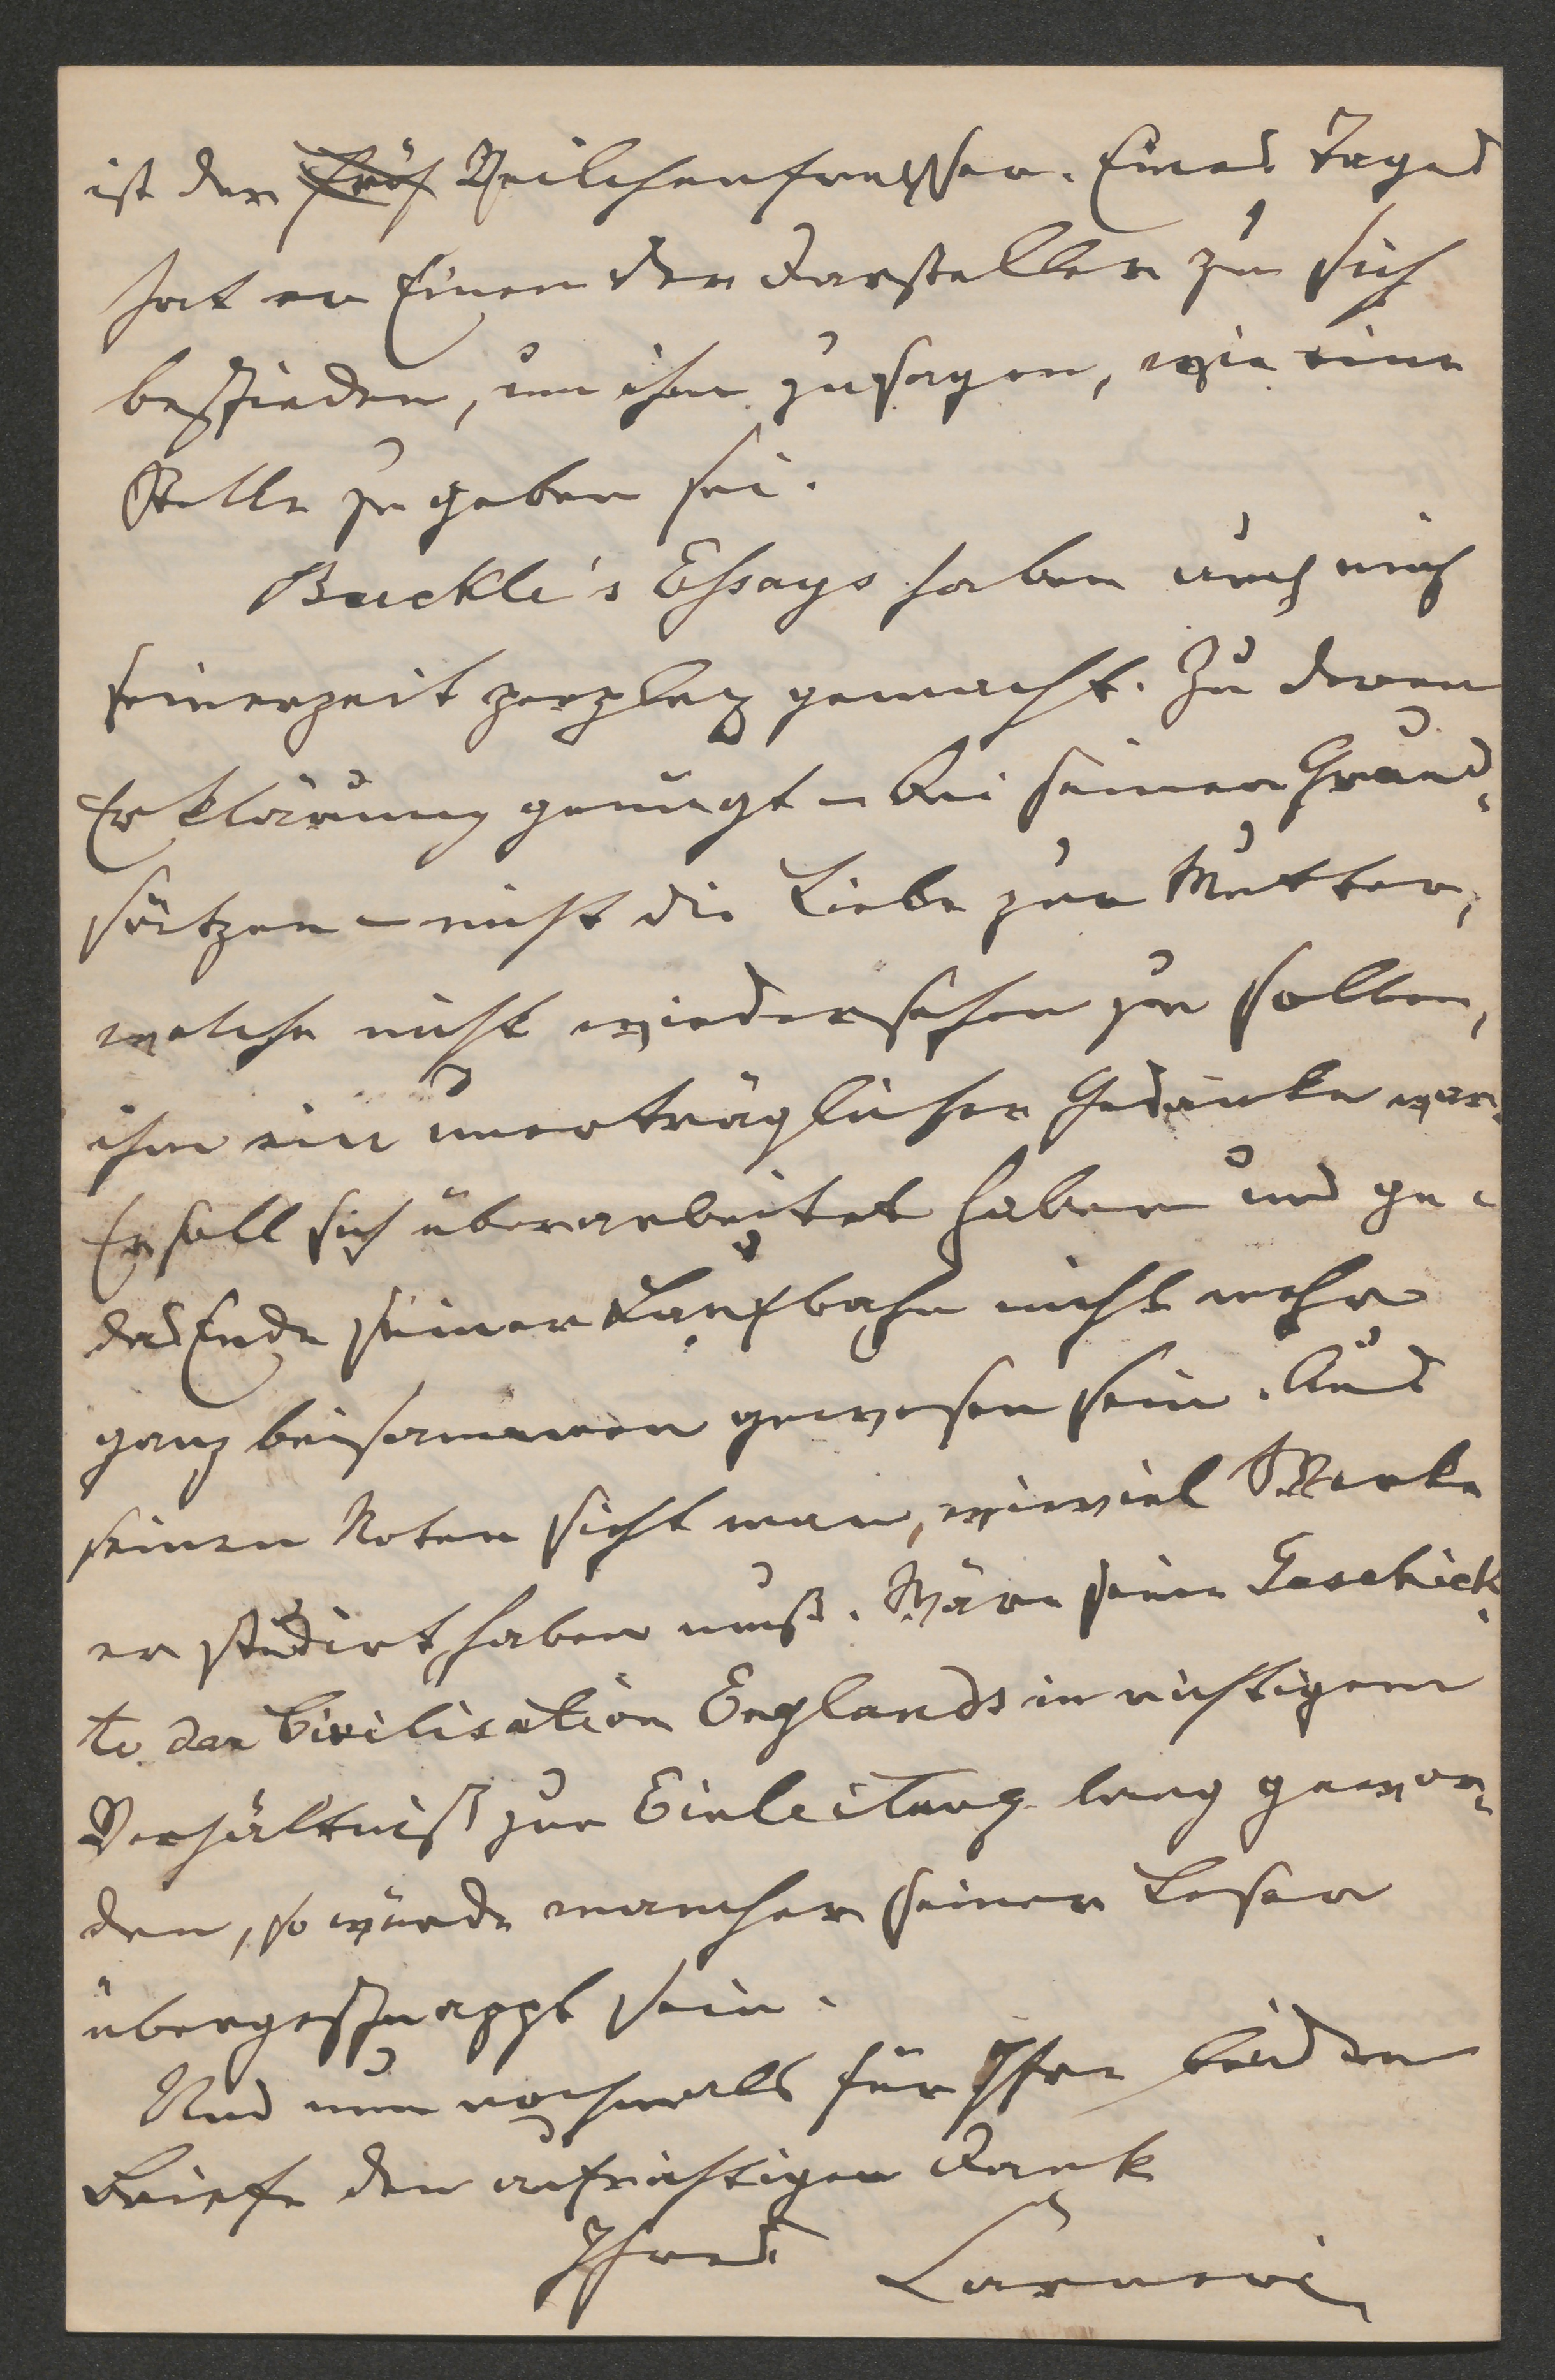 ist der Veilchenfresser. Eines Tages
hat er Einen der Darsteller zu sich
beschieden, um ihm zu sagen, wie eine
Stelle zu geben sei.
Buckle's Essays haben auch mich
seinerzeit perplex gemacht. Zu deren
Erklärung genügt – bei seinen Grund-
sätzen – nicht die Liebe zur Mutter,
welche nicht wiedersehen zu sollen,
ihm ein unerträglicher Gedanke war.
Er soll sich überarbeitet haben und ge-
das Ende seiner Laufbahn nicht mehr
ganz beisammen gewesen sein. Aus
seinen Noten sieht man, wieviel Werke
er studirt haben muß. Wäre seine Geschich
te der Civilisation Englands in richtigem
Verhältniß zur Einleitung lang gewor-
den, so würde mancher seiner Leser
übergeschnappt sein.
Und nun nochmals für Ihre beiden
Briefe den aufrichtigen Dank
Ihres
Carneri